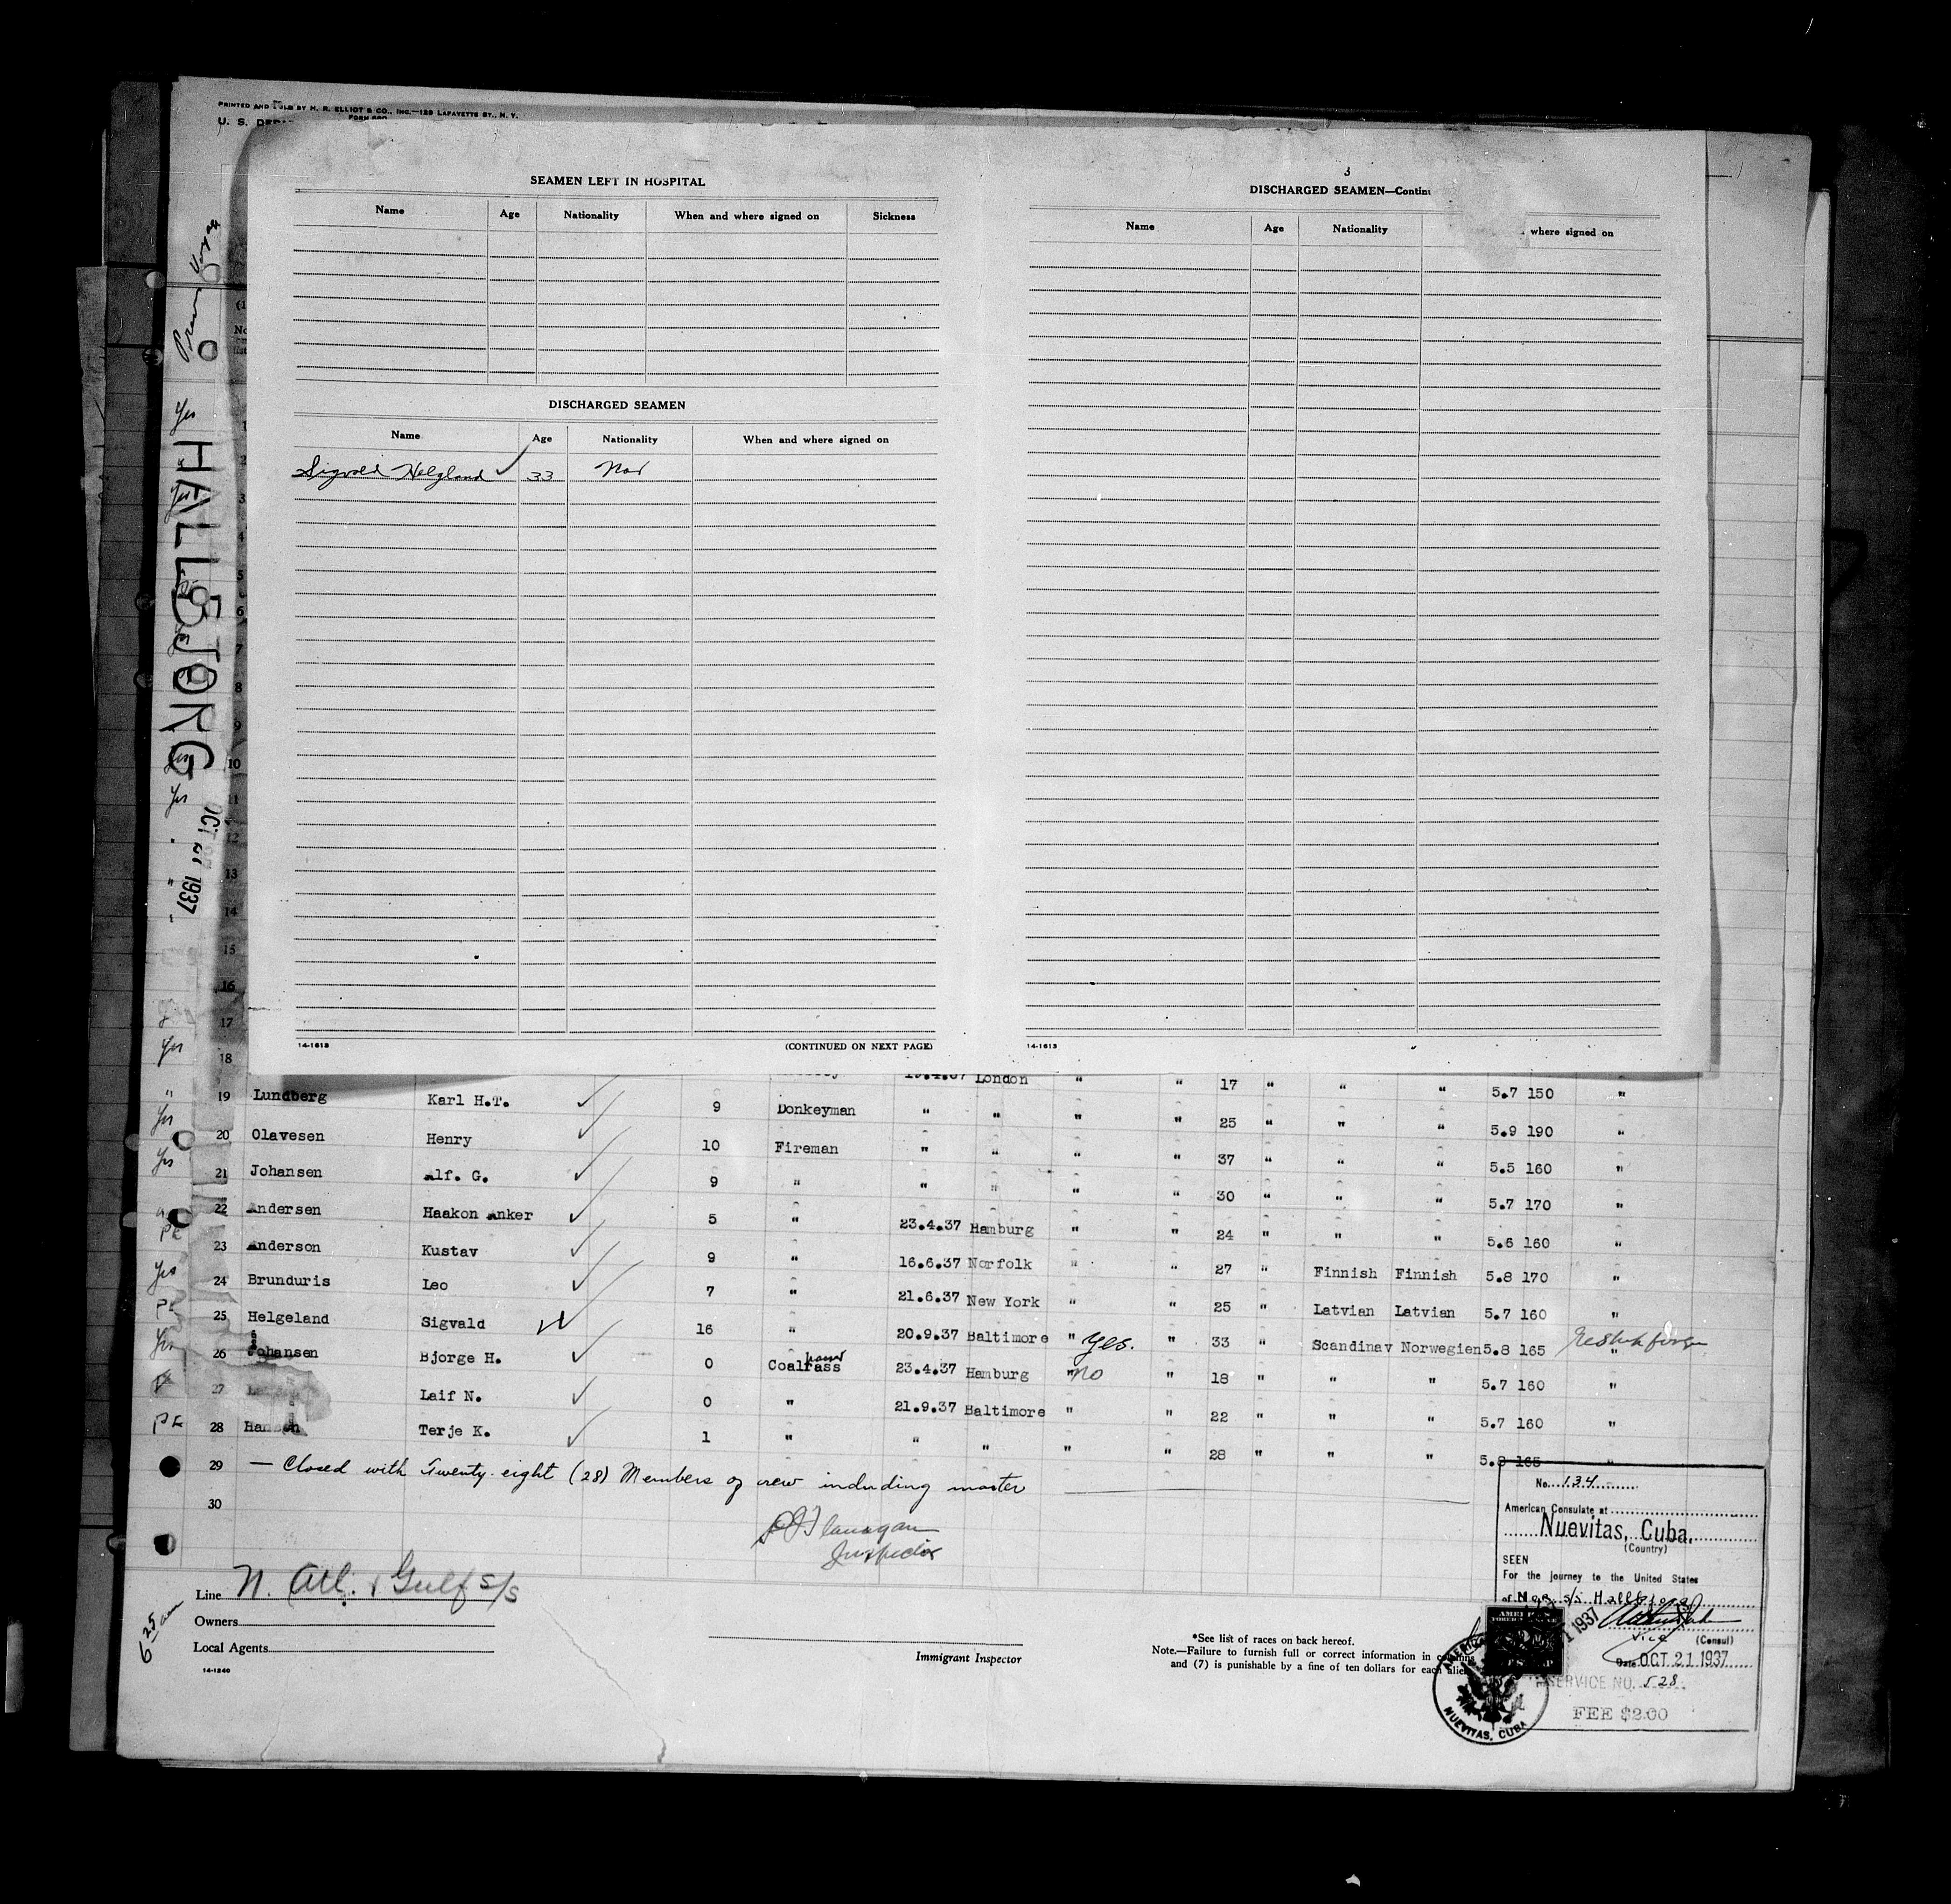 PRINTED AND SOLD BY H. R. ELLIOT & CO., INC.—129 LAFAYETTE ST., N. Y.
FORM 680
U. S. DEPA
SEAMEN LEFT IN HOSPITAL
Name Age Nationality When and where signed on Sickness
DISCHARGED SEAMEN
Name Age Nationality When and where signed on
Sigvald Helgland 33 Nor
14-1613 (CONTINUED ON NEXT PAGE)
3
DISCHARGED SEAMEN—Contin
Name Age Nationality where signed on
14-1613
HALLBJORG
1937
2
3
4
5
6
7
8
9
10
11
12
13
14
15
16
17
18
London " " 17 " " " 5.7 150 "
19 Lundberg Karl H.T. 9 Donkeyman " " " " 25 " " " 5.9 190 "
20 Olavesen Henry 10 Fireman " " " " 37 " " " 5.5 160 "
21 Johansen Alf. G. 9 " " " " " 30 " " " 5.7 170 "
22 Andersen Haakon Anker 5 " 23.4.37 Hamburg " " 24 " " " 5.6 160 "
23 Anderson Kustav 9 " 16.6.37 Norfolk " " 27 " Finnish Finnish 5.8 170 "
24 Brunduris Leo 7 " 21.6.37 New York " " 25 " Latvian Latvian 5.7 160 "
25 Helgeland Sigvald 16 " 20.9.37 Baltimore " Yes. " 33 " Scandinav Norwegien 5.8 165 "
26 Johansen Bjorge H. 0 Coalrass 23.4.37 Hamburg " no " 18 " " " 5.7 160 "
27 Leif N. 0 " 21.9.37 Baltimore " " 22 " " " 5.7 160 "
28 Hansen Terje K. 1 " " " " " 28 " " " 5.8 165 "
29 — Closed with Twenty-eight (28) Members of crew including master
30
Flanagan
Inspector
Line N. Atl. & Gulf s/s
Owners
Local Agents
14-1240
6 25 am
Immigrant Inspector
*See list of races on back hereof.
Note.—Failure to furnish full or correct information in columns
and (7) is punishable by a fine of ten dollars for each alien
No. 134
American Consulate at
Nuevitas, Cuba.
(Country)
SEEN
For the journey to the United States
of Nor. s/s Hallbjorg
Vice (Consul)
Date OCT 21 1937
SERVICE NO. 528
FEE $2.00
NUEVITAS, CUBA